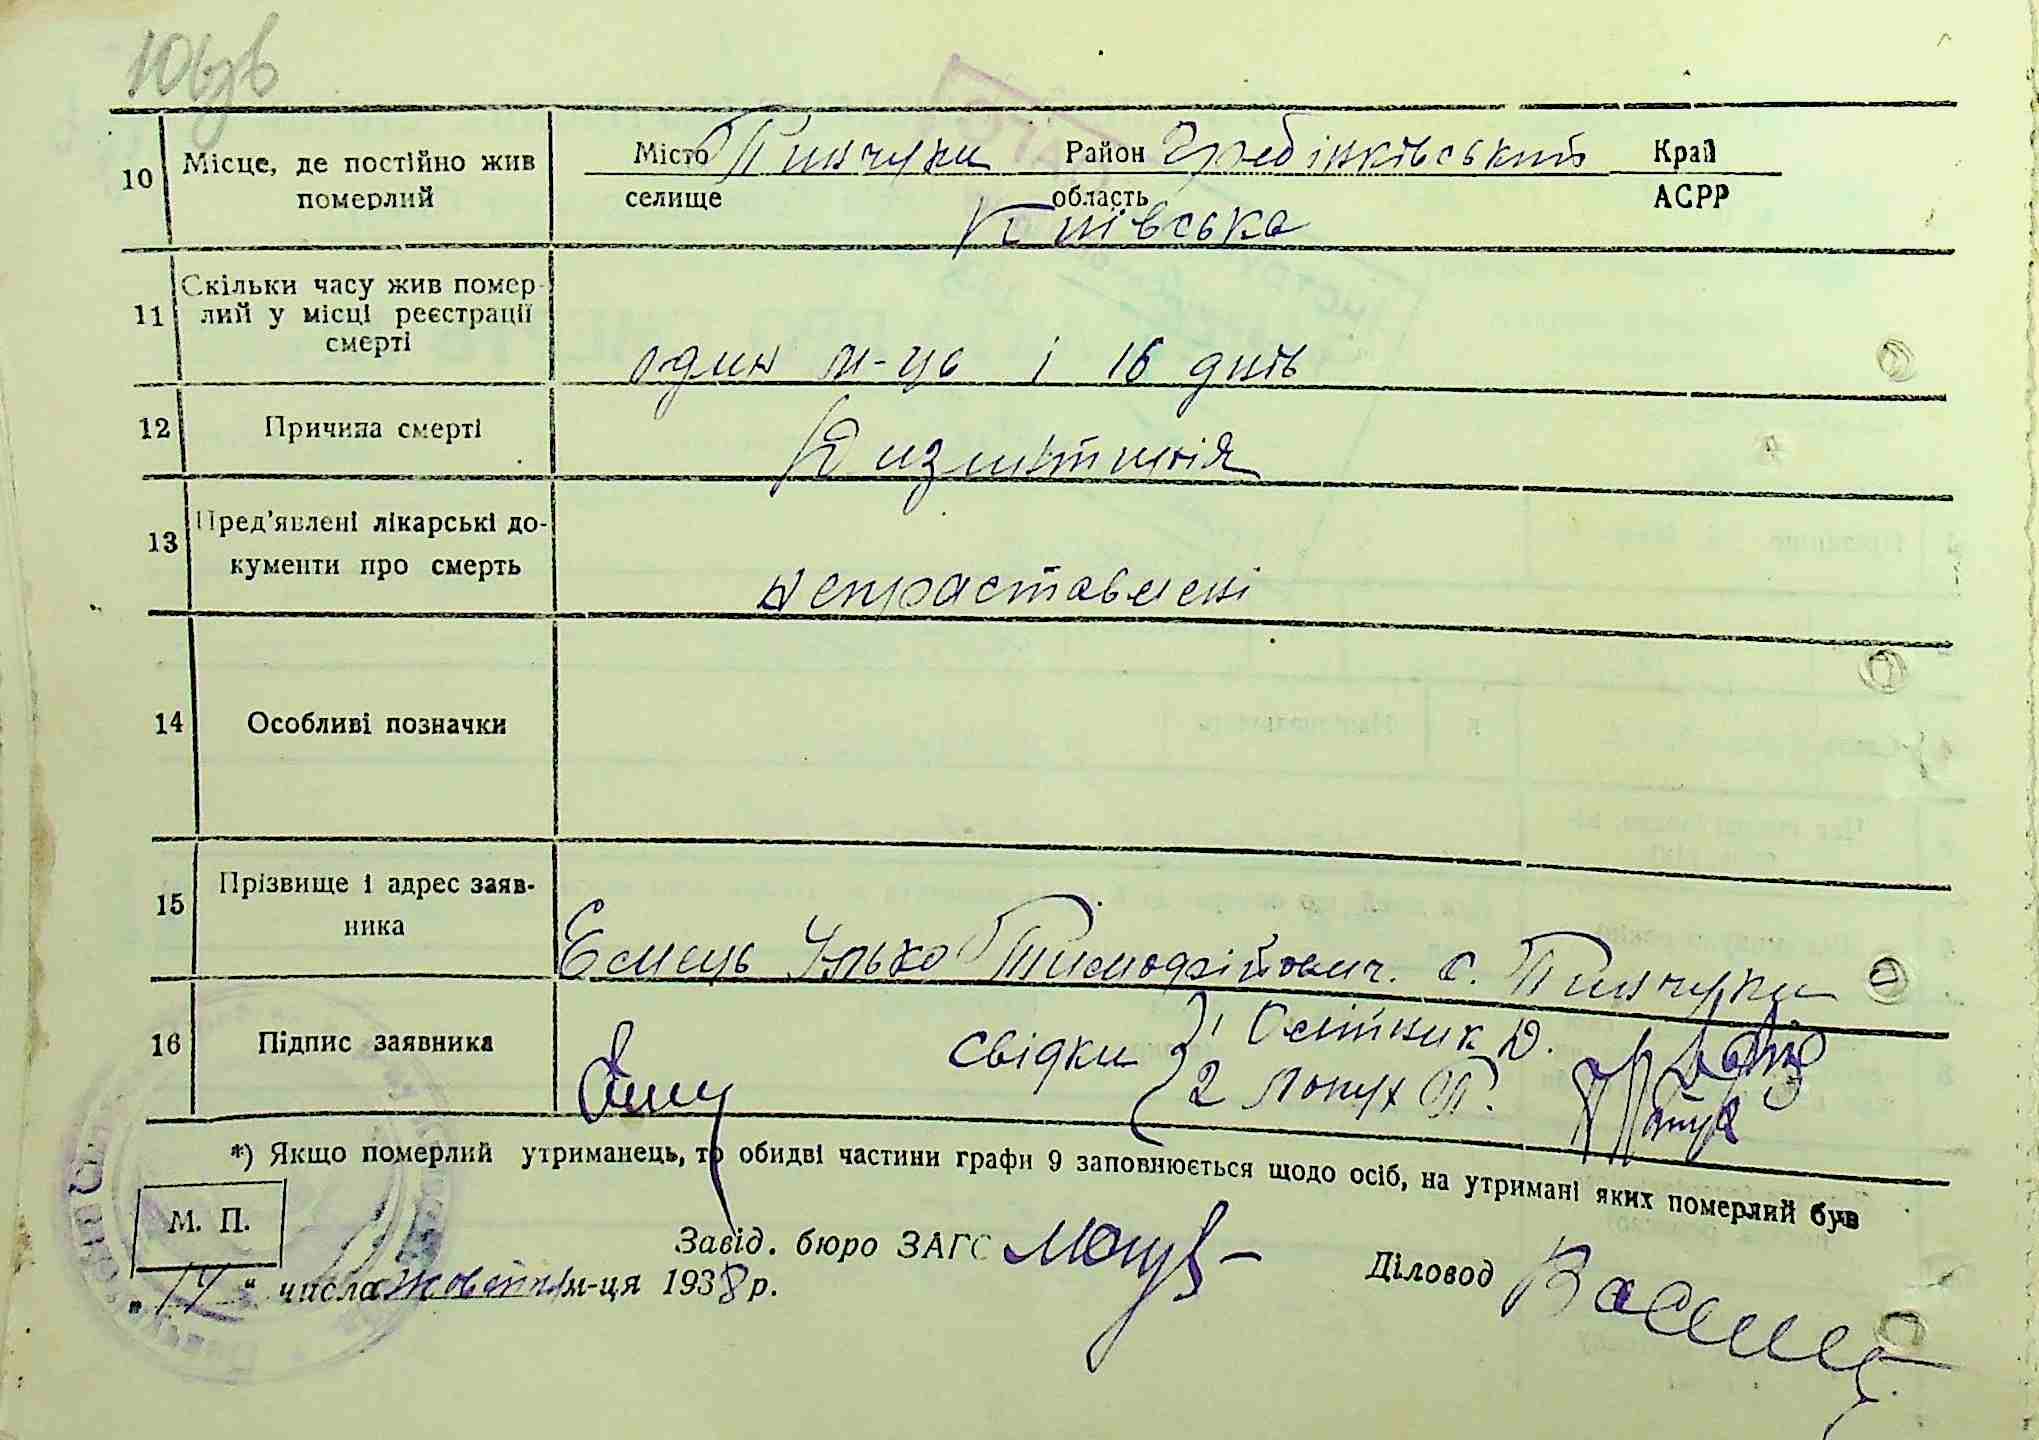 106зв
10 Місце, де постійно жив померлий
Місто Пинчуки Район Гребінківський Край
селище область АСРР
Київська
11 Скільки часу жив помер-
лий у місці реєстрації
смерті
один м-ць і 16 днів
12 Причина смерті
Дизинтирія
13 Пред'явлені лікарські до-
кументи про смерть
непраставлені
14 Особливі позначки
15 Прізвище і адрес заяв-
ника
Ємець Улько Тимофійович. с. Пинчуки
16 Підпис заявника
свідки 1 Ослітник Д.
2 Лопух П.
*) Якщо померлий утриманець, то обидві частини графи 9 заповнюється щодо осіб, на утримані яких померлий був
М. П.
Завід. бюро ЗАГС
Діловод
„14“ числа жовтня м-ця 1938 р.